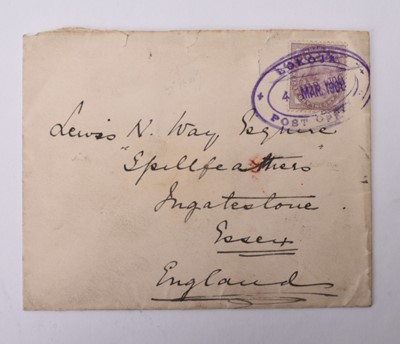 LOKOJA
4 MAR. 1900
POST OFF
Lewis N. Way Esquire
"Spillfeathers"
Ingatestone.
Essex
England